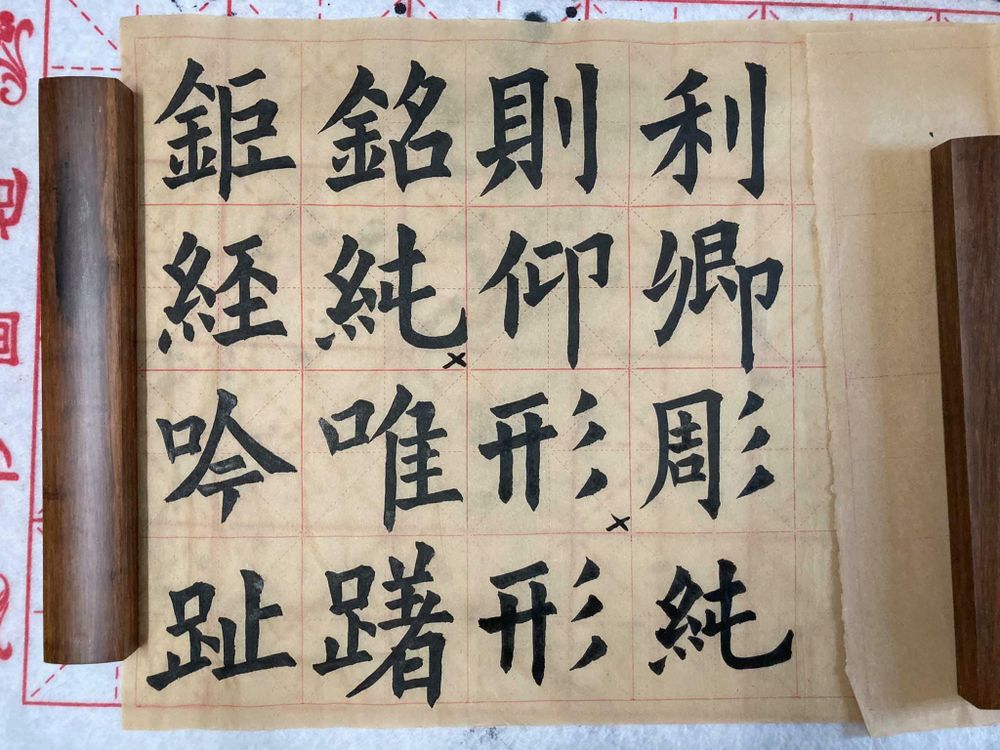 利卿彫純
則仰形形
銘純唯躇
鉅経吟趾